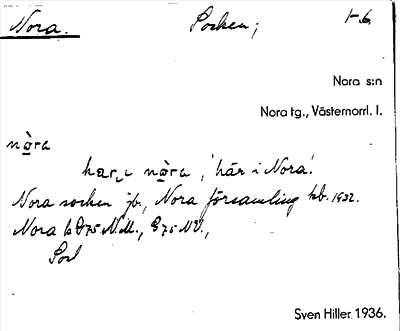 Nora. Socken; 1-6.
Nora s:n
Nora tg., Västernorrl. l.
nòra
hær nòra, 'här i Nora'.
Nora socken jb., Nora församling kb. 1932.
Nora N.M., N.V.,
Sockn
Sven Hiller. 1936.